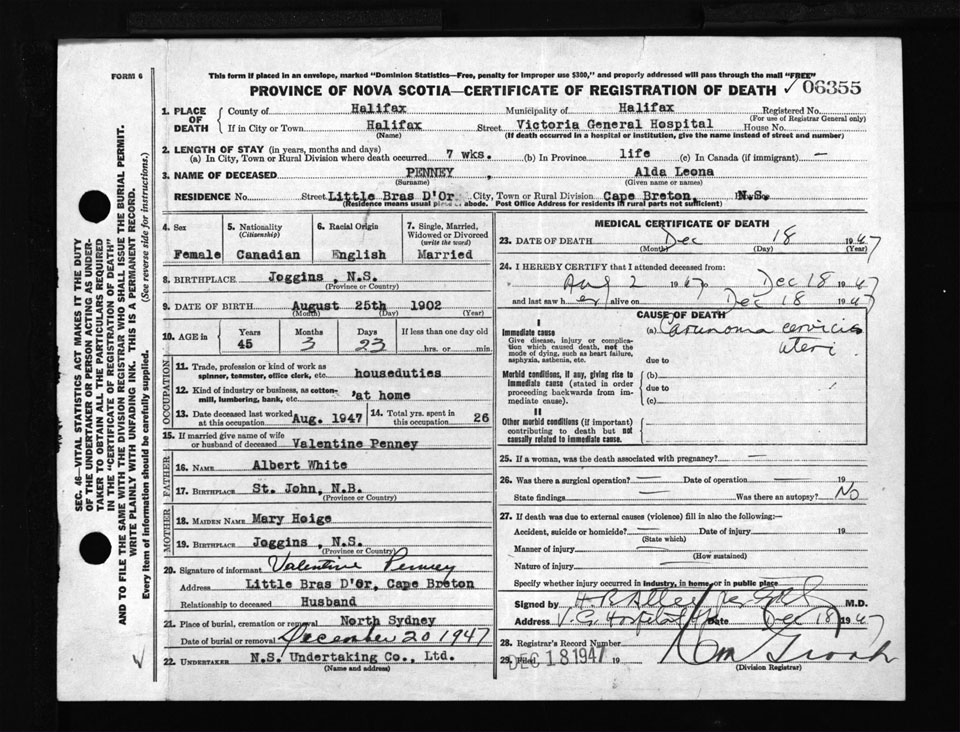 FORM 6
This form if placed in an envelope, marked "Dominion Statistics—Free, penalty for improper use $300," and properly addressed will pass through the mail "FREE"
PROVINCE OF NOVA SCOTIA—CERTIFICATE OF REGISTRATION OF DEATH ✓ 06355
1. PLACE OF DEATH
County of Halifax Municipality of Halifax Registered No.
(For use of Registrar General only)
If in City or Town Halifax Street Victoria General Hospital House No.
(Name) (If death occurred in a hospital or institution, give the name instead of street and number)
2. LENGTH OF STAY (in years, months and days)
(a) In City, Town or Rural Division where death occurred 7 wks. (b) In Province life (c) In Canada (if immigrant) —
3. NAME OF DECEASED PENNEY , Alda Leona
(Surname) (Given name or names)
RESIDENCE No. Street Little Bras D'Or City, Town or Rural Division Cape Breton, N.S.
(Residence means usual place of abode. Post Office Address for residents in rural parts not sufficient)
4. Sex 5. Nationality (Citizenship) 6. Racial Origin 7. Single, Married, Widowed or Divorced (write the word)
Female Canadian English Married
8. BIRTHPLACE Joggins , N.S.
(Province or Country)
9. DATE OF BIRTH August 25th 1902
(Month) (Day) (Year)
10. AGE in Years Months Days If less than one day old
45 3 23 hrs. or min.
OCCUPATION
11. Trade, profession or kind of work as spinner, teamster, office clerk, etc. houseduties
12. Kind of industry or business, as cotton-mill, lumbering, bank, etc. at home
13. Date deceased last worked at this occupation Aug. 1947 14. Total yrs. spent in this occupation 26
15. If married give name of wife or husband of deceased Valentine Penney
FATHER
16. NAME Albert White
17. BIRTHPLACE St. John, N.B.
(Province or Country)
MOTHER
18. MAIDEN NAME Mary Hoige
19. BIRTHPLACE Joggins , N.S.
(Province or Country)
20. Signature of informant Valentine Penney
Address Little Bras D'Or, Cape Breton
Relationship to deceased Husband
21. Place of burial, cremation or removal North Sydney
Date of burial or removal December 20 1947
22. UNDERTAKER N.S. Undertaking Co., Ltd.
(Name and address)
MEDICAL CERTIFICATE OF DEATH
23. DATE OF DEATH Dec 18 1947
(Month) (Day) (Year)
24. I HEREBY CERTIFY that I attended deceased from:
Aug 2 1947 to Dec 18 1947
and last saw her alive on Dec 18 1947
CAUSE OF DEATH
I
Immediate cause (a) Carcinoma cervicis uteri.
Give disease, injury or complication which caused death, not the mode of dying, such as heart failure, asphyxia, asthenia, etc.
due to
Morbid conditions, if any, giving rise to immediate cause (stated in order proceeding backwards from immediate cause).
(b)
due to
(c)
II
Other morbid conditions (if important) contributing to death but not causally related to immediate cause.
25. If a woman, was the death associated with pregnancy? —
26. Was there a surgical operation? — Date of operation — 19
State findings — Was there an autopsy? No
27. If death was due to external causes (violence) fill in also the following:—
Accident, suicide or homicide? — Date of injury 19
(State which)
Manner of injury —
(How sustained)
Nature of injury —
Specify whether injury occurred in industry, in home, or in public place
Signed by M.D.
Address V. G. Hospital Date Dec 18 1947
28. Registrar's Record Number
29. Filed DEC 18 1947 19
(Division Registrar)
SEC. 46—VITAL STATISTICS ACT MAKES IT THE DUTY
OF THE UNDERTAKER OR PERSON ACTING AS UNDER-
TAKER TO OBTAIN ALL THE PARTICULARS REQUIRED
IN THE "CERTIFICATE OF REGISTRATION OF DEATH"
AND TO FILE THE SAME WITH THE DIVISION REGISTRAR WHO SHALL ISSUE THE BURIAL PERMIT.
WRITE PLAINLY WITH UNFADING INK. THIS IS A PERMANENT RECORD.
Every item of information should be carefully supplied. (See reverse side for instructions.)